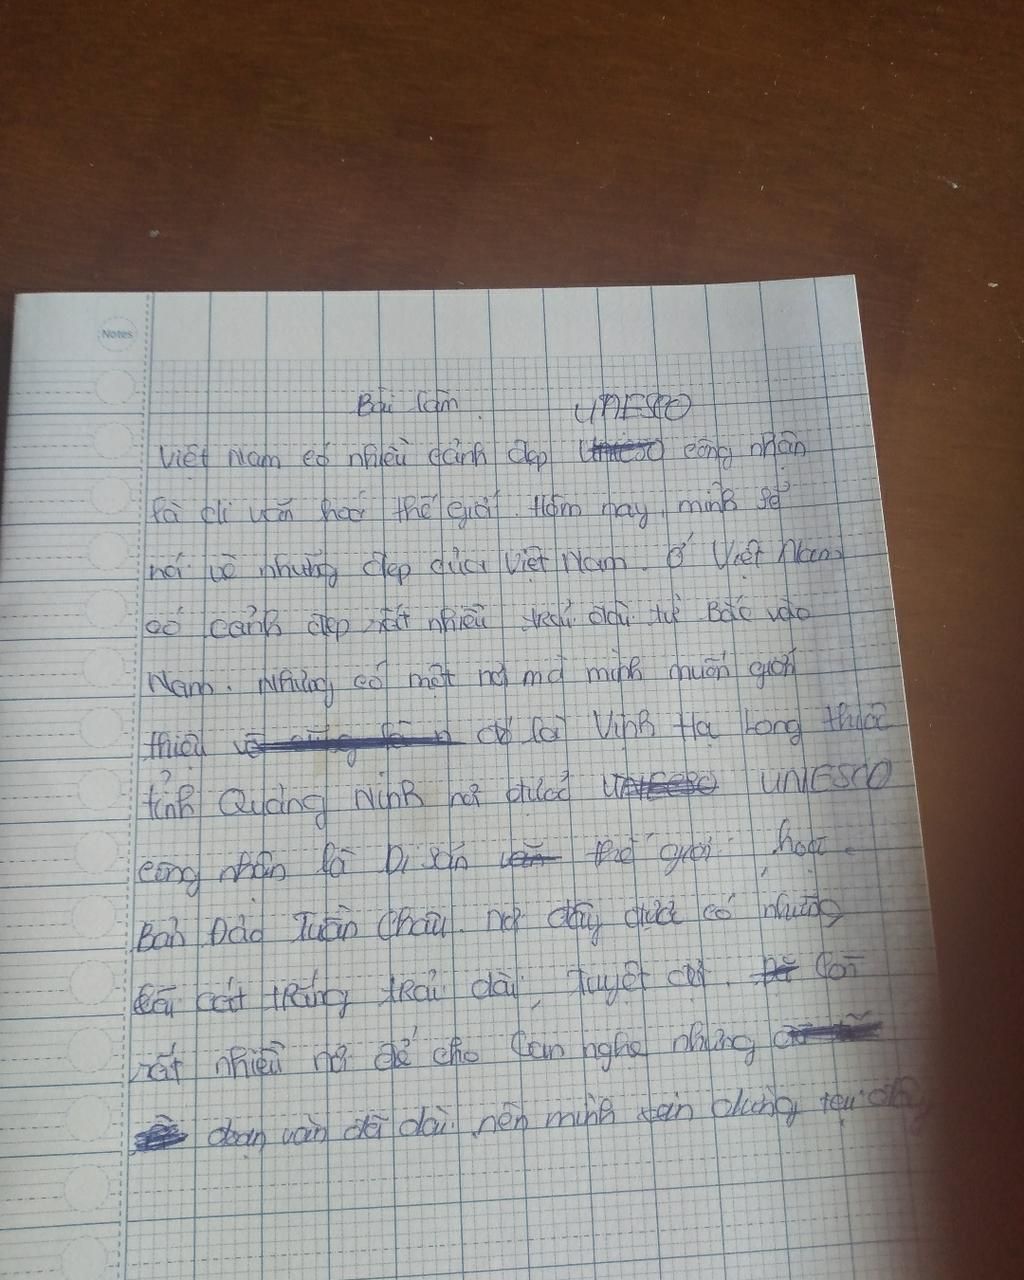 Notes
Bài làm
UNESCO
Việt Nam có nhiều cảnh đẹp công nhận
là di văn hoá thế giới. Hôm nay mình sẽ
nói về những đẹp của Việt Nam. Ở Việt Nam
có cảnh đẹp rất nhiều trải dài từ Bắc vào
Nam. Nhưng có một nơi mà mình muốn giới
thiệu đó là Vịnh Hạ Long thuộc
tỉnh Quảng Ninh nơi được UNIESCO
công nhận là Di sản thế giới. hoặc
Bán Đảo Tuần Châu. nơi đây được có những
bãi cát trắng trải dài, tuyệt còn
rất nhiều nơi để cho bạn nghe nhưng
đoạn văn đã dài nên mình xin dừng tại đây